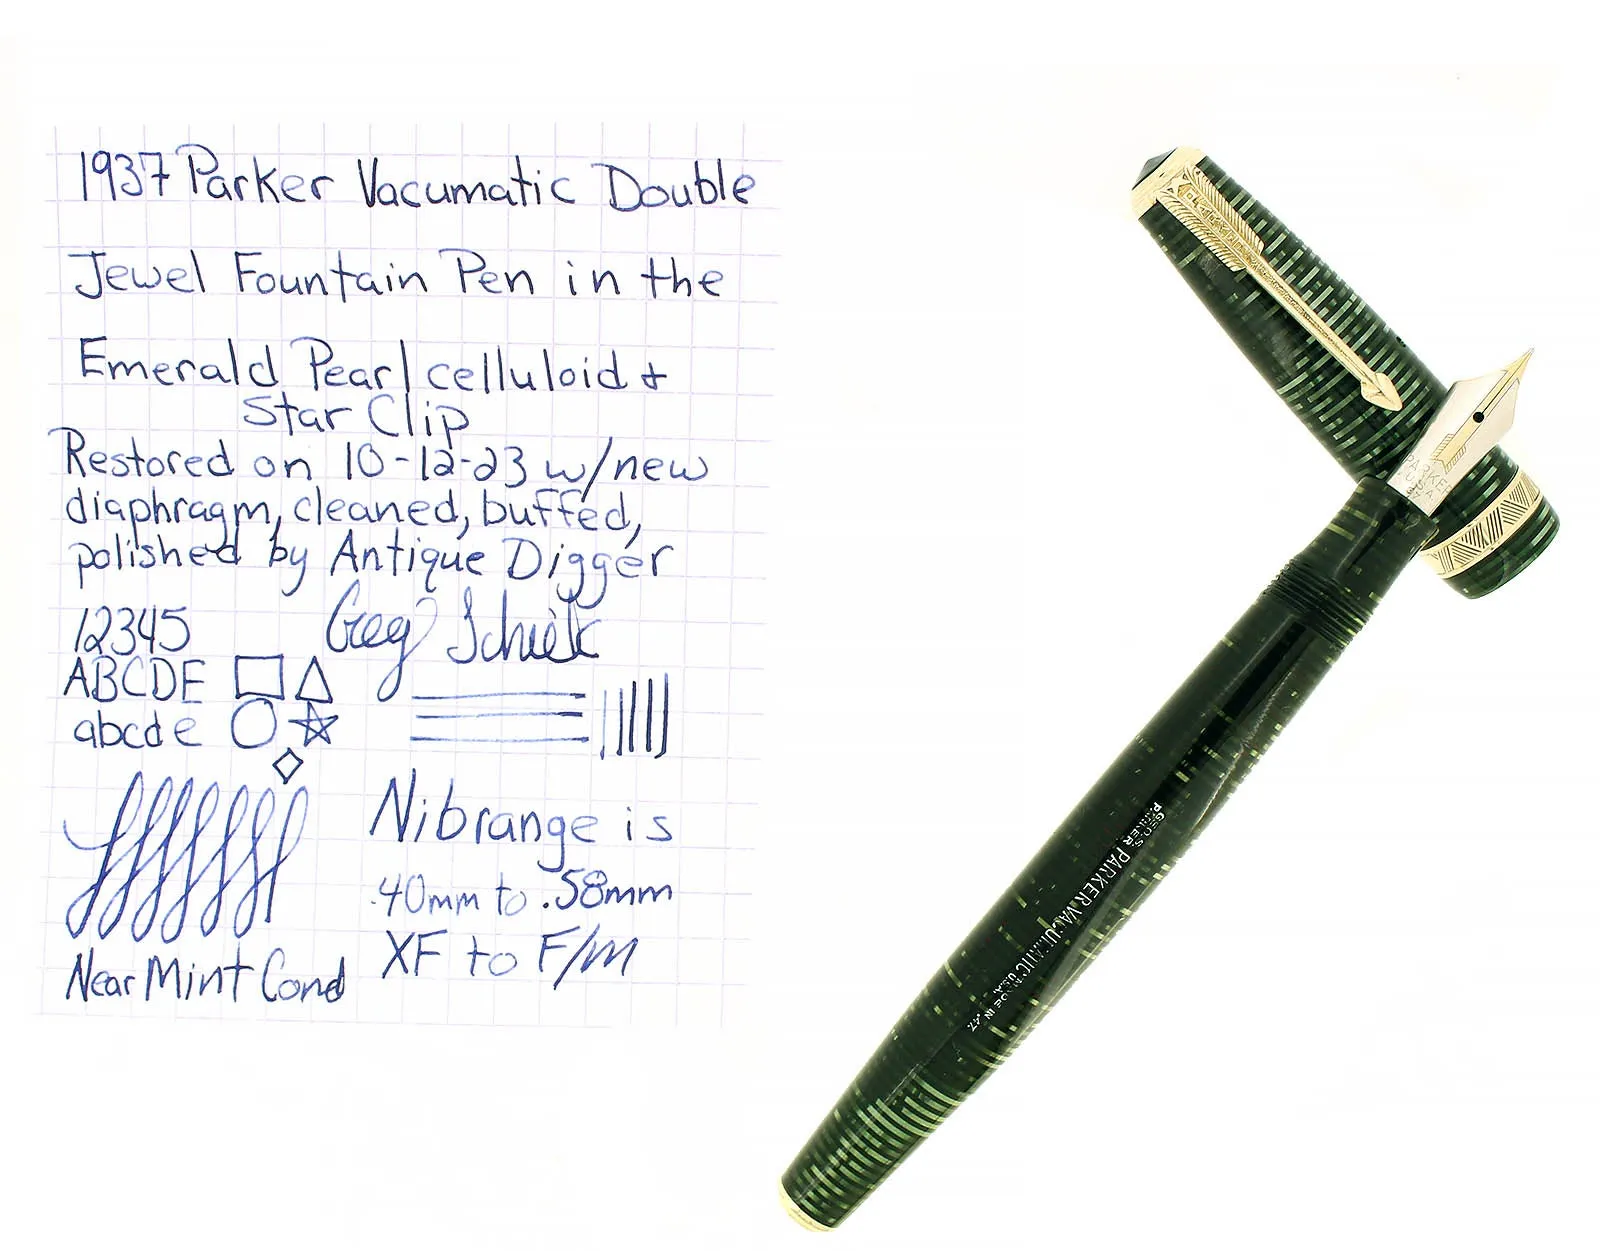 1937 Parker Vacumatic Double
Jewel Fountain Pen in the
Emerald Pearl celluloid +
Star Clip
Restored on 10-12-23 w/new
diaphragm, cleaned, buffed,
polished by Antique Digger
12345
Greg
ABCDE
abcde
Nibrange is
.40mm to .58mm
XF to F/M
Near Mint Cond
PARKER
GEO.S.
PARKER PARKER VACUMATIC MADE IN
U.S.A. .47.